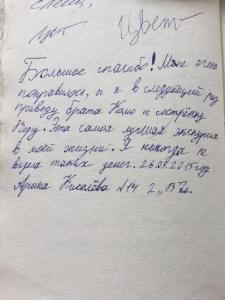 Цвет
Большое спасибо! Мне очень
понравилось, и я в следующий раз
приведу брата Колю и сестрёнку
Веру. Эта самая лучшая экскурсия
в моей жизни. Я никогда не
видела таких денег. 26.03.2015 год
Арина Киселёва №14 2 „В" кл.